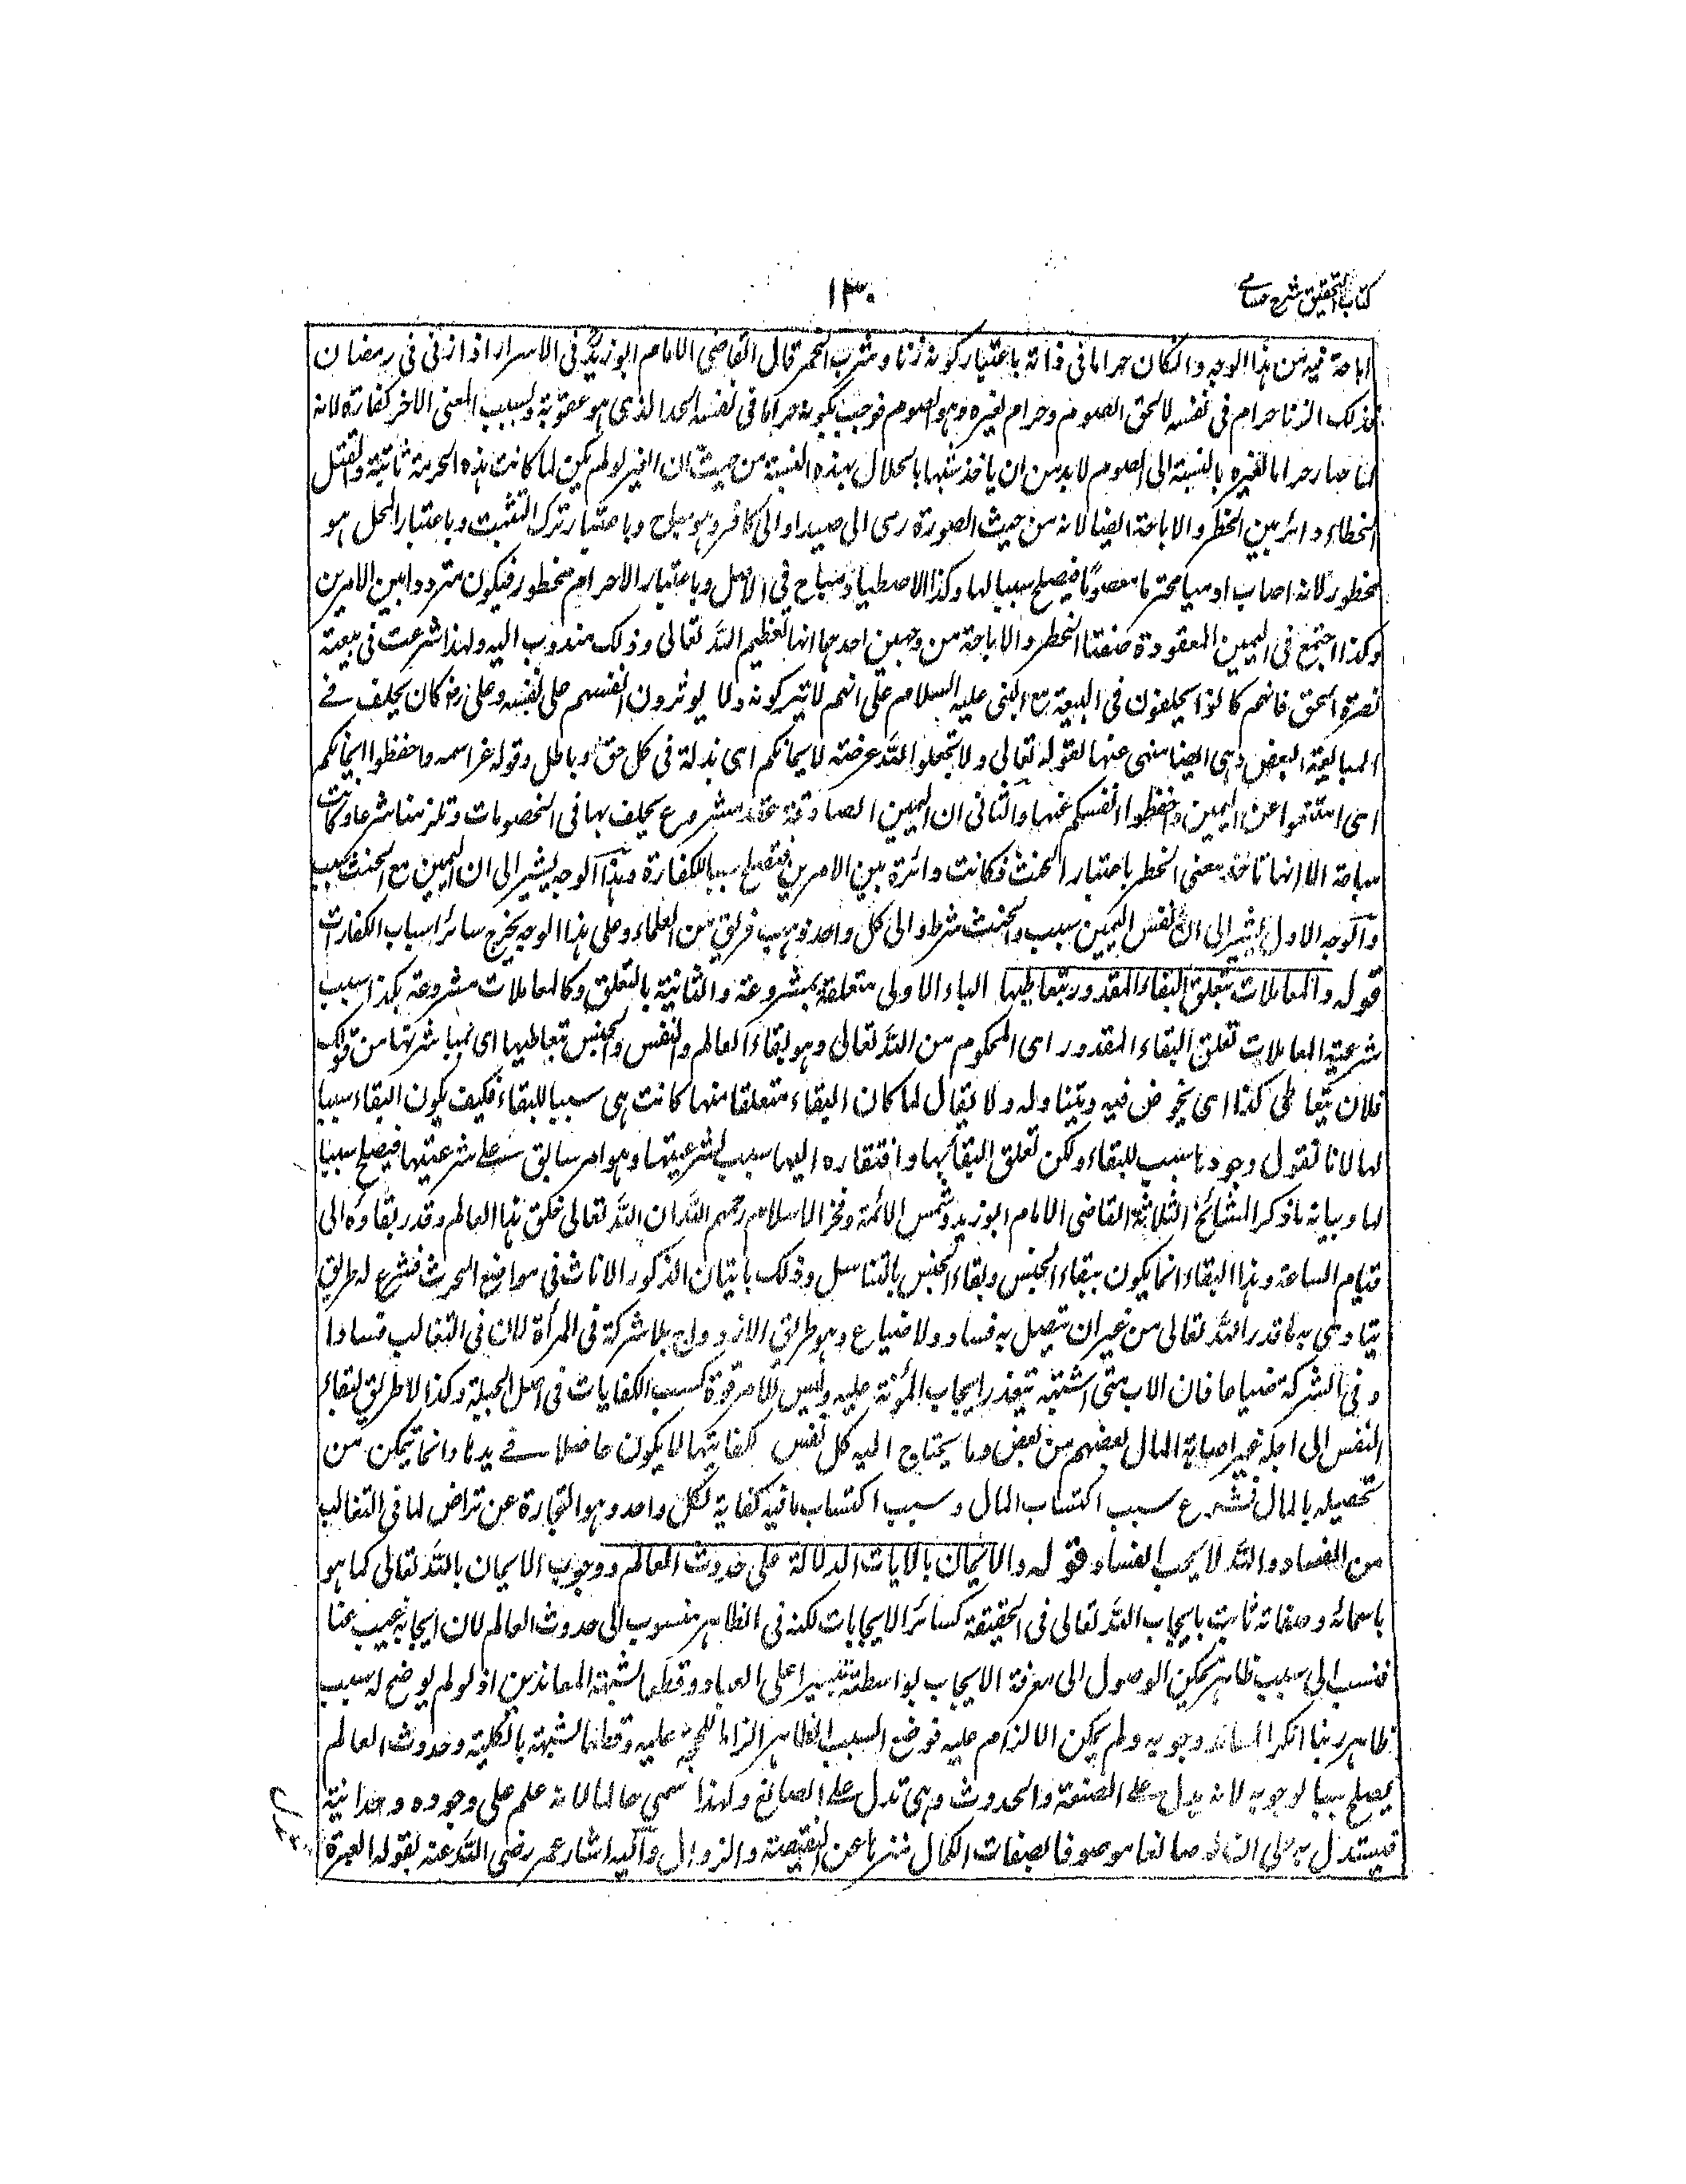 كتاب التحقيق شرح حسامى
١٣٠
اباحة فيه من هذا الوجه وانكان حراما فى ذاته باعتبار كونه زنا وشرب الخمر قال القاضى الامام ابو زيد فى الاسرار اذا زنى فى رمضان
فذلك الزنا حرام فى نفسه لا لحق الصوم وحرام لغيره وهو الصوم فوجب بكونه حراما فى نفسه الحد الذى هو عقوبة ولسبب المعنى الاخر كفارة لانه
لما صار حراما لغيره بالنسبة الى الصوم لا بد من ان ياخذ شبها بالحلال بهذه النسبة من حيث ان الغير لو لم يكن لما كانت هذه الحرمة ثابتة والقتل
الخطاء دائر بين الحظر والاباحة ايضا لانه من حيث الصورة رمى الى صيد او الى كافر وهو مباح وباعتبار ترك التثبت وباعتبار المحل هو
محظور لانه اصاب ادميا محترما معصوما فيصلح سببا لها وكذا الاصطياد مباح فى الاصل وباعتبار الاحرام محظور فيكون مترددا بين الامرين
وكذا اجتمع فى اليمين المعقودة صفتا الحظر والاباحة من وجهين احدهما انها تعظيم الله تعالى وذلك مندوب اليه ولهذا شرعت فى بيعة
نصرة الحق فانهم كانوا يحلفون فى البيعة مع النبى عليه السلام على انهم لا يتركونه ولا يوثرون انفسهم على نفسه وعلى رض كان يحلف فے
المبايعة البعض وهى ايضا منهى عنها لقوله تعالى ولا تجعلوا الله عرضة لايمانكم اى بذلة فى كل حق وباطل وقوله عز اسمه واحفظوا ايمانكم
اى امتنعوا عن اليمين واحفظوا انفسكم عنها والثانى ان اليمين الصادقة عقد مشروع يحلف بها فى الخصومات وتلزمنا شرعا وكانت
مباحة الا انها تاخذ معنى الحظر باعتبار الحنث فكانت دائرة بين الامرين فتصلح سببا للكفارة وهذا الوجه يشير الى ان اليمين مع الحنث سبب
والوجه الاول يشير الى ان نفس اليمين سبب والحنث شرط والى كل واحد ذهب فريق من العلماء وعلى هذا الوجه يخرج سائر اسباب الكفارات
قوله والمعاملات بتعلق البقاء المقدور بتعاطيها الباء الاولى متعلقة بمشروعة والثانية بالتعلق وكالمعاملات مشروعة بكذا سبب
شرعية المعاملات تعلق البقاء المقدور اى المحكوم من الله تعالى وهو بقاء العالم والنفس والجنس بتعاطيها اى بمباشرتها من قولك
فلان يتعاطى كذا اى يخوض فيه ويتناوله ولا يقال لما كان البقاء متعلقا منها كانت هى سببا للبقاء فكيف يكون البقاء سببا
لها لانا نقول وجودها سبب للبقاء ولكن تعلق البقاء بها وافتقاره اليها سبب لشرعيتها وهو امر سابق علے شرعيتها فيصلح سببا
لها وبيانه ما ذكر المشائخ الثلاثة القاضى الامام ابو زيد وشمس الائمة وفخر الاسلام رحمهم الله ان الله تعالى خلق هذا العالم وقدر بقاؤه الى
قيام الساعة وهذا البقاء انما يكون ببقاء الجنس وبقاء الجنس بالتناسل وذلك باتيان الذكور الاناث فى مواضع الحرث فشرع له طريق
يتادى به ما قدر الله تعالى من غير ان يتصل به فساد ولا ضياع وهو طريق الازدواج بلا شركة فى المرأة لان فى التغالب فسادا
وفى الشركة ضياعا فان الاب متى اشتبه تيعذر ايجاب المؤنة عليه وليس للام قوة كسب الكفايات فى اصل الجبلة وكذا لا طريق لبقاء
النفس الى اجله غير اصابة المال بعضهم من بعض وما يحتاج اليه كل نفس لكفايتها لا يكون حاصلا فے يدها وانما يتمكن من
تحصيله بالمال فشرع سبب اكتساب المال وسبب اكتساب ما فيه كفاية لكل واحد وهو التجارة عن تراض لما فى التغالب
من الفساد والله لا يحب الفساد قوله والايمان بالايات الدلالة على حدوث العالم ووجوب الايمان بالله تعالى كما هو
باسمائه وصفاته ثابت بايجاب الله تعالى فى الحقيقة كسائر الايجابات لكنه فى الظاهر منسوب الى حدوث العالم لان ايجابه غيب عنا
فنسب الى سبب ظاهر يمكن الوصول الى معرفة الايجاب بواسطته تيسيرا على العباد وقطعا لشبهة المعاندين اذ لو لم يوضح له سبب
ظاهر ربما انكر المعاند وجوبه ولم يمكن الالزام عليه فوضع السبب الظاهر الزاما للحجة عليه وقطعا لشبهته بالكلية وحدوث العالم
يصلح سببا لوجوبه لانه يدل علے الصنعة والحدوث وهى تدل علے الصانع ولهذا سمى عالما لانه علم على وجوده وحدانية
فيستدل به على ان له صانعا موصوفا بصفات الكمال منزها عن النقيصة والزوال واليه اشار عمر رضى الله عنه بقوله البعرة